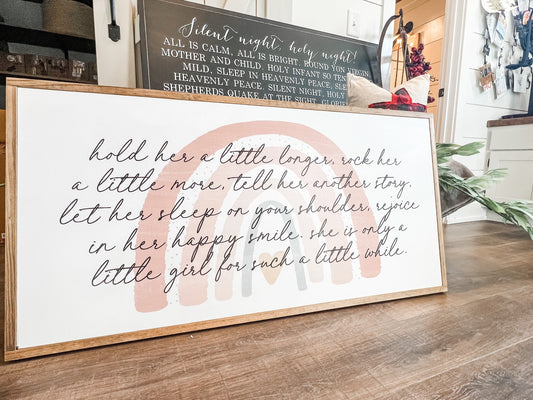 Silent night, holy night!
ALL IS CALM, ALL IS BRIGHT. ROUND YON VIRGIN
MOTHER AND CHILD. HOLY INFANT SO
MILD, SLEEP IN HEAVENLY PEACE, SLE
HEAVENLY PEACE. SILENT NIGHT, HOLY
SHEPHERDS QUAKE AT THE SIGHT, GLORIES
hold her a little longer, rock her
a little more, tell her another story.
let her sleep on your shoulder, rejoice
in her happy smile. she is only a
little girl for such a little while.